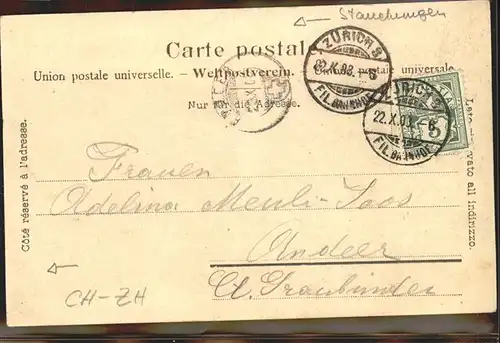 Stauchungen
Carte postale
Union postale universelle. — Weltpostverein. — Unione postale universale
Nur für die Adresse.
ZÜRICH 8
22.X.03. – 8
FIL. BAHNHOF
ZÜRICH 8
22.X.03. – 8
FIL. BAHNHOF
5
Côté réservé à l'adresse.
Lato riservato all indirizzo.
Frauen
Adelina Meuli-Loos
Andeer
Ct. Graubünden
CH-ZH